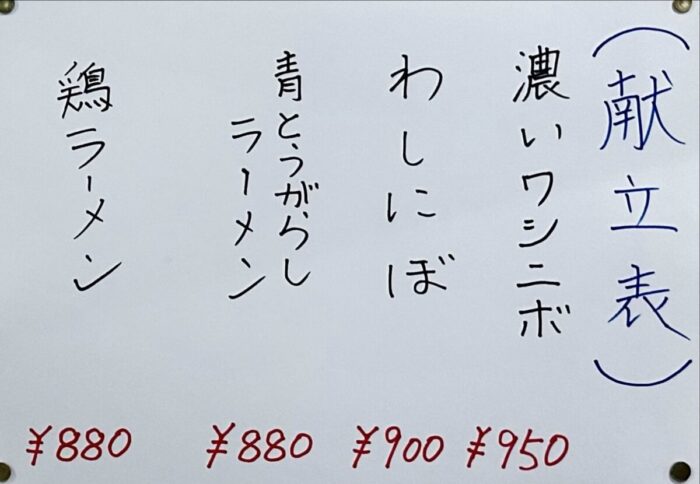 (献立表)
濃いワシニボ
¥950
わしにぼ
¥900
青とうがらし
ラーメン
¥880
鶏ラーメン
¥880